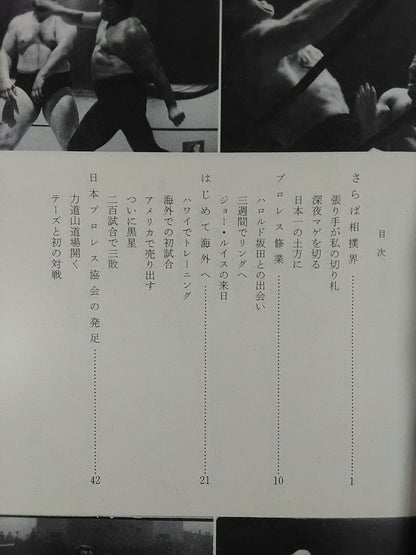 目次
さらば相撲界……………………1
張り手が私の切り札
深夜マゲを切る
日本一の土方に
プロレス修業……………………10
ハロルド坂田との出会い
三週間でリングへ
ジョー・ルイスの来日
はじめて海外へ……………………21
ハワイでトレーニング
海外での初試合
アメリカで売り出す
ついに黒星
二百試合で三敗
日本プロレス協会の発足……………………42
力道山道場開く
テーズと初の対戦